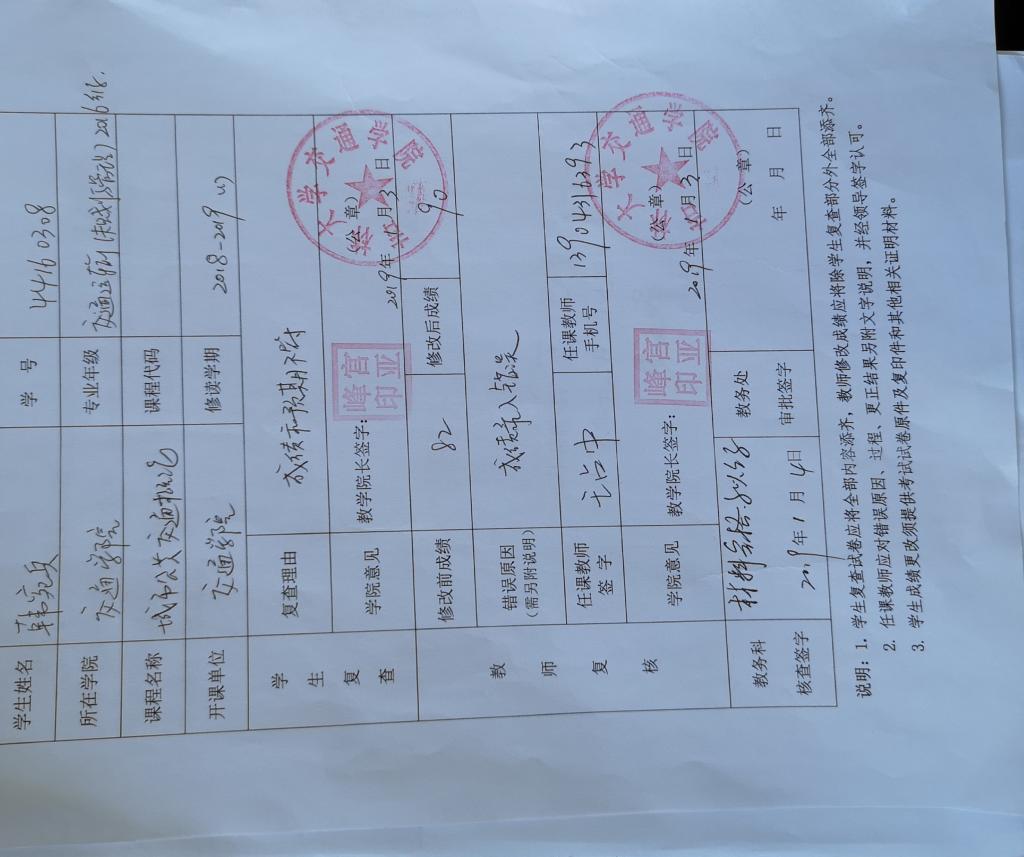 学生姓名 学 号 44160308
所在学院 交通学院 专业年级 交通运输 2016级.
课程名称 城市公共交通 课程代码
开课单位 交通学院 修读学期 2018-2019
学生复查
复查理由 成绩和预期不符
学院意见 教学院长签字: 宫亚峰印 (公 章)
2019年1月3日
教师复核
修改前成绩 82 修改后成绩 90
错误原因
(需另附说明) 成绩录入错误
任课教师
签 字 任课教师
手机号 13904316393
学院意见 教学院长签字: 宫亚峰印 (公 章)
2019年1月3日
教务科
核查签字 2019年1月4日
教务处
审批签字 (公 章)
年 月 日
说明: 1. 学生复查试卷应将全部内容添齐, 教师修改成绩应将除学生复查部分外全部添齐。
2. 任课教师应对错误原因、过程、更正结果另附文字说明, 并经领导签字认可。
3. 学生成绩更改须提供考试试卷原件及复印件和其他相关证明材料。